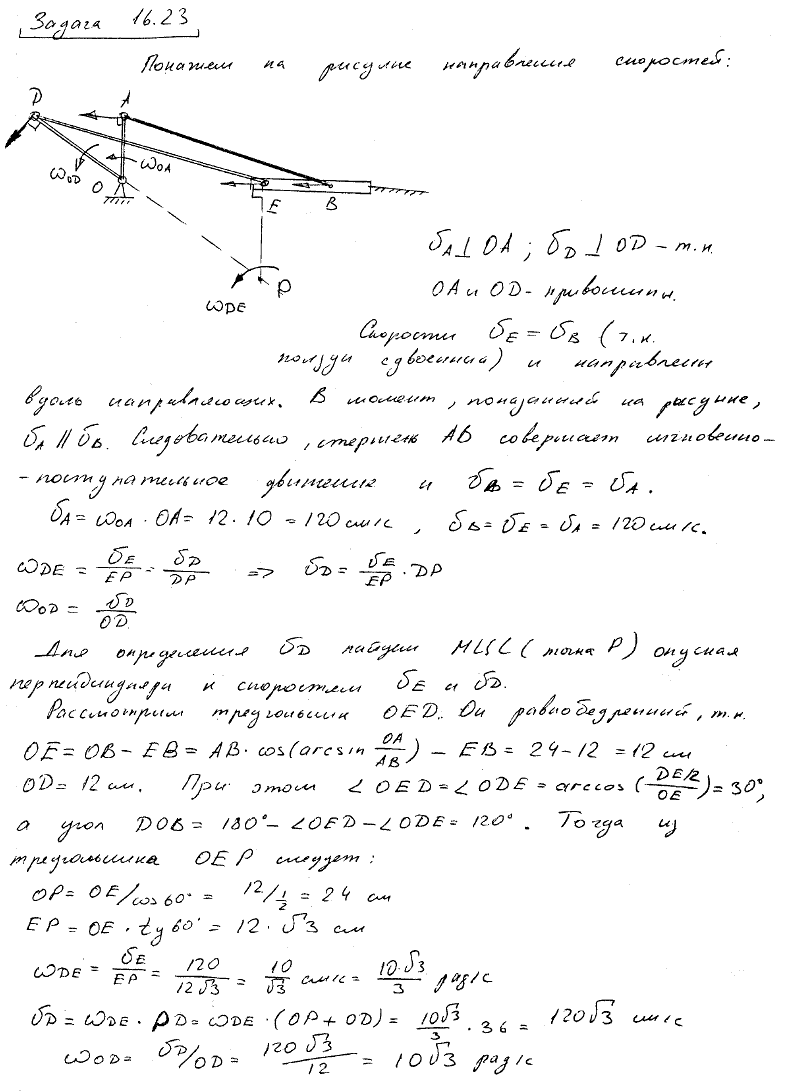 Задача 16.23
Покажем на рисунке направления скоростей:
D A
ω_OD ω_OA
O E B
P
ω_DE
υ_A ⊥ OA ; υ_D ⊥ OD – т.к.
OA и OD - кривошипы.
Скорости υ_E = υ_B (т.к.
ползун сдвоенный) и направлены
вдоль направляющих. В момент, показанный на рисунке,
υ_A || υ_B. Следовательно, стержень AB совершает мгновенно-
-поступательное движение и υ_B = υ_E = υ_A.
υ_A = ω_OA · OA = 12 · 10 = 120 см/с , υ_B = υ_E = υ_A = 120 см/с.
ω_DE = υ_E/EP = υ_D/DP => υ_D = υ_E/EP · DP
ω_OD = υ_D/OD
Для определения υ_D найдем МЦС (точка P) опуская
перпендикуляри к скоростям υ_E и υ_D.
Рассмотрим треугольник OED. Он равнобедренный, т.к.
OE = OB – EB = AB · cos(arcsin OA/AB) – EB = 24 – 12 = 12 см
OD = 12 см. При этом ∠OED = ∠ODE = arccos (DE/2/OE) = 30°,
а угол DOB = 180° – ∠OED – ∠ODE = 120°. Тогда из
треугольника OEP следует:
OP = OE/cos 60° = 12/½ = 24 см
EP = OE · tg 60° = 12 · √3 см
ω_DE = υ_E/EP = 120/12√3 = 10/√3 см/с = 10·√3/3 рад/с
υ_D = ω_DE · PD = ω_DE · (OP + OD) = 10√3/3 · 36 = 120√3 см/с
ω_OD = υ_D/OD = 120√3/12 = 10√3 рад/с